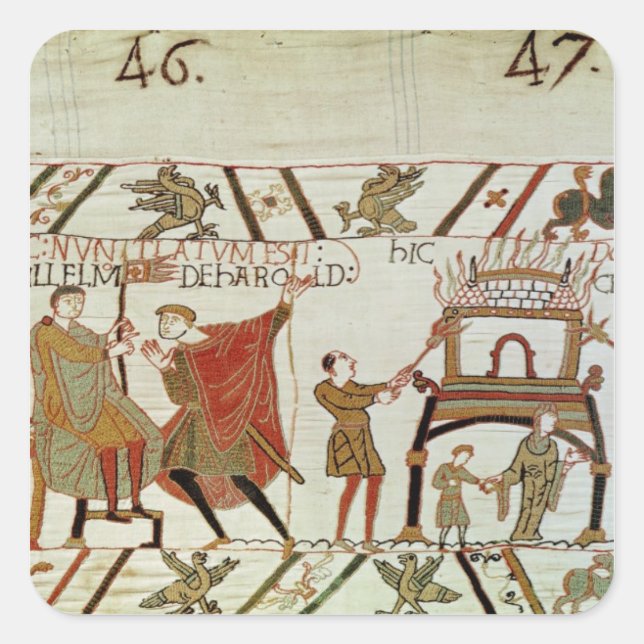 46. 47.
: NUNTIATUM EST:
LLELM DE HAROLD:
HIC